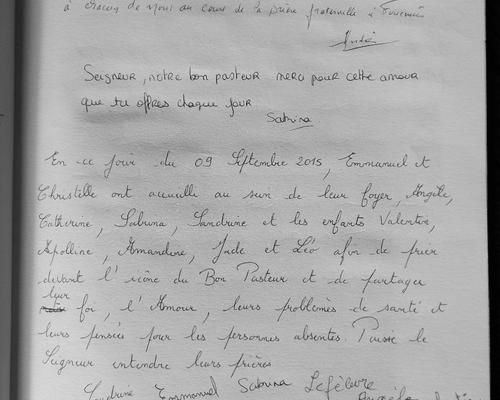 à chacun de nous au cours de la prière fraternelle à
André
Seigneur, notre bon pasteur merci pour cette amour
que tu offres chaque jour
Sabrina
En ce jour du 09 Septembre 2015, Emmanuel et
Christelle ont accueilli au sein de leur foyer, Angèle,
Catherine, Sabrina, Sandrine et les enfants Valentin,
Apolline, Amandine, Jade et Léo afin de prier
devant l'icône du Bon Pasteur et de partager
leur
foi, l'Amour, leurs problèmes de santé et
leurs pensées pour les personnes absentes. Puisse le
Seigneur entendre leurs prières
Sandrine Emmanuel Sabrina Lefebvre
Angèle